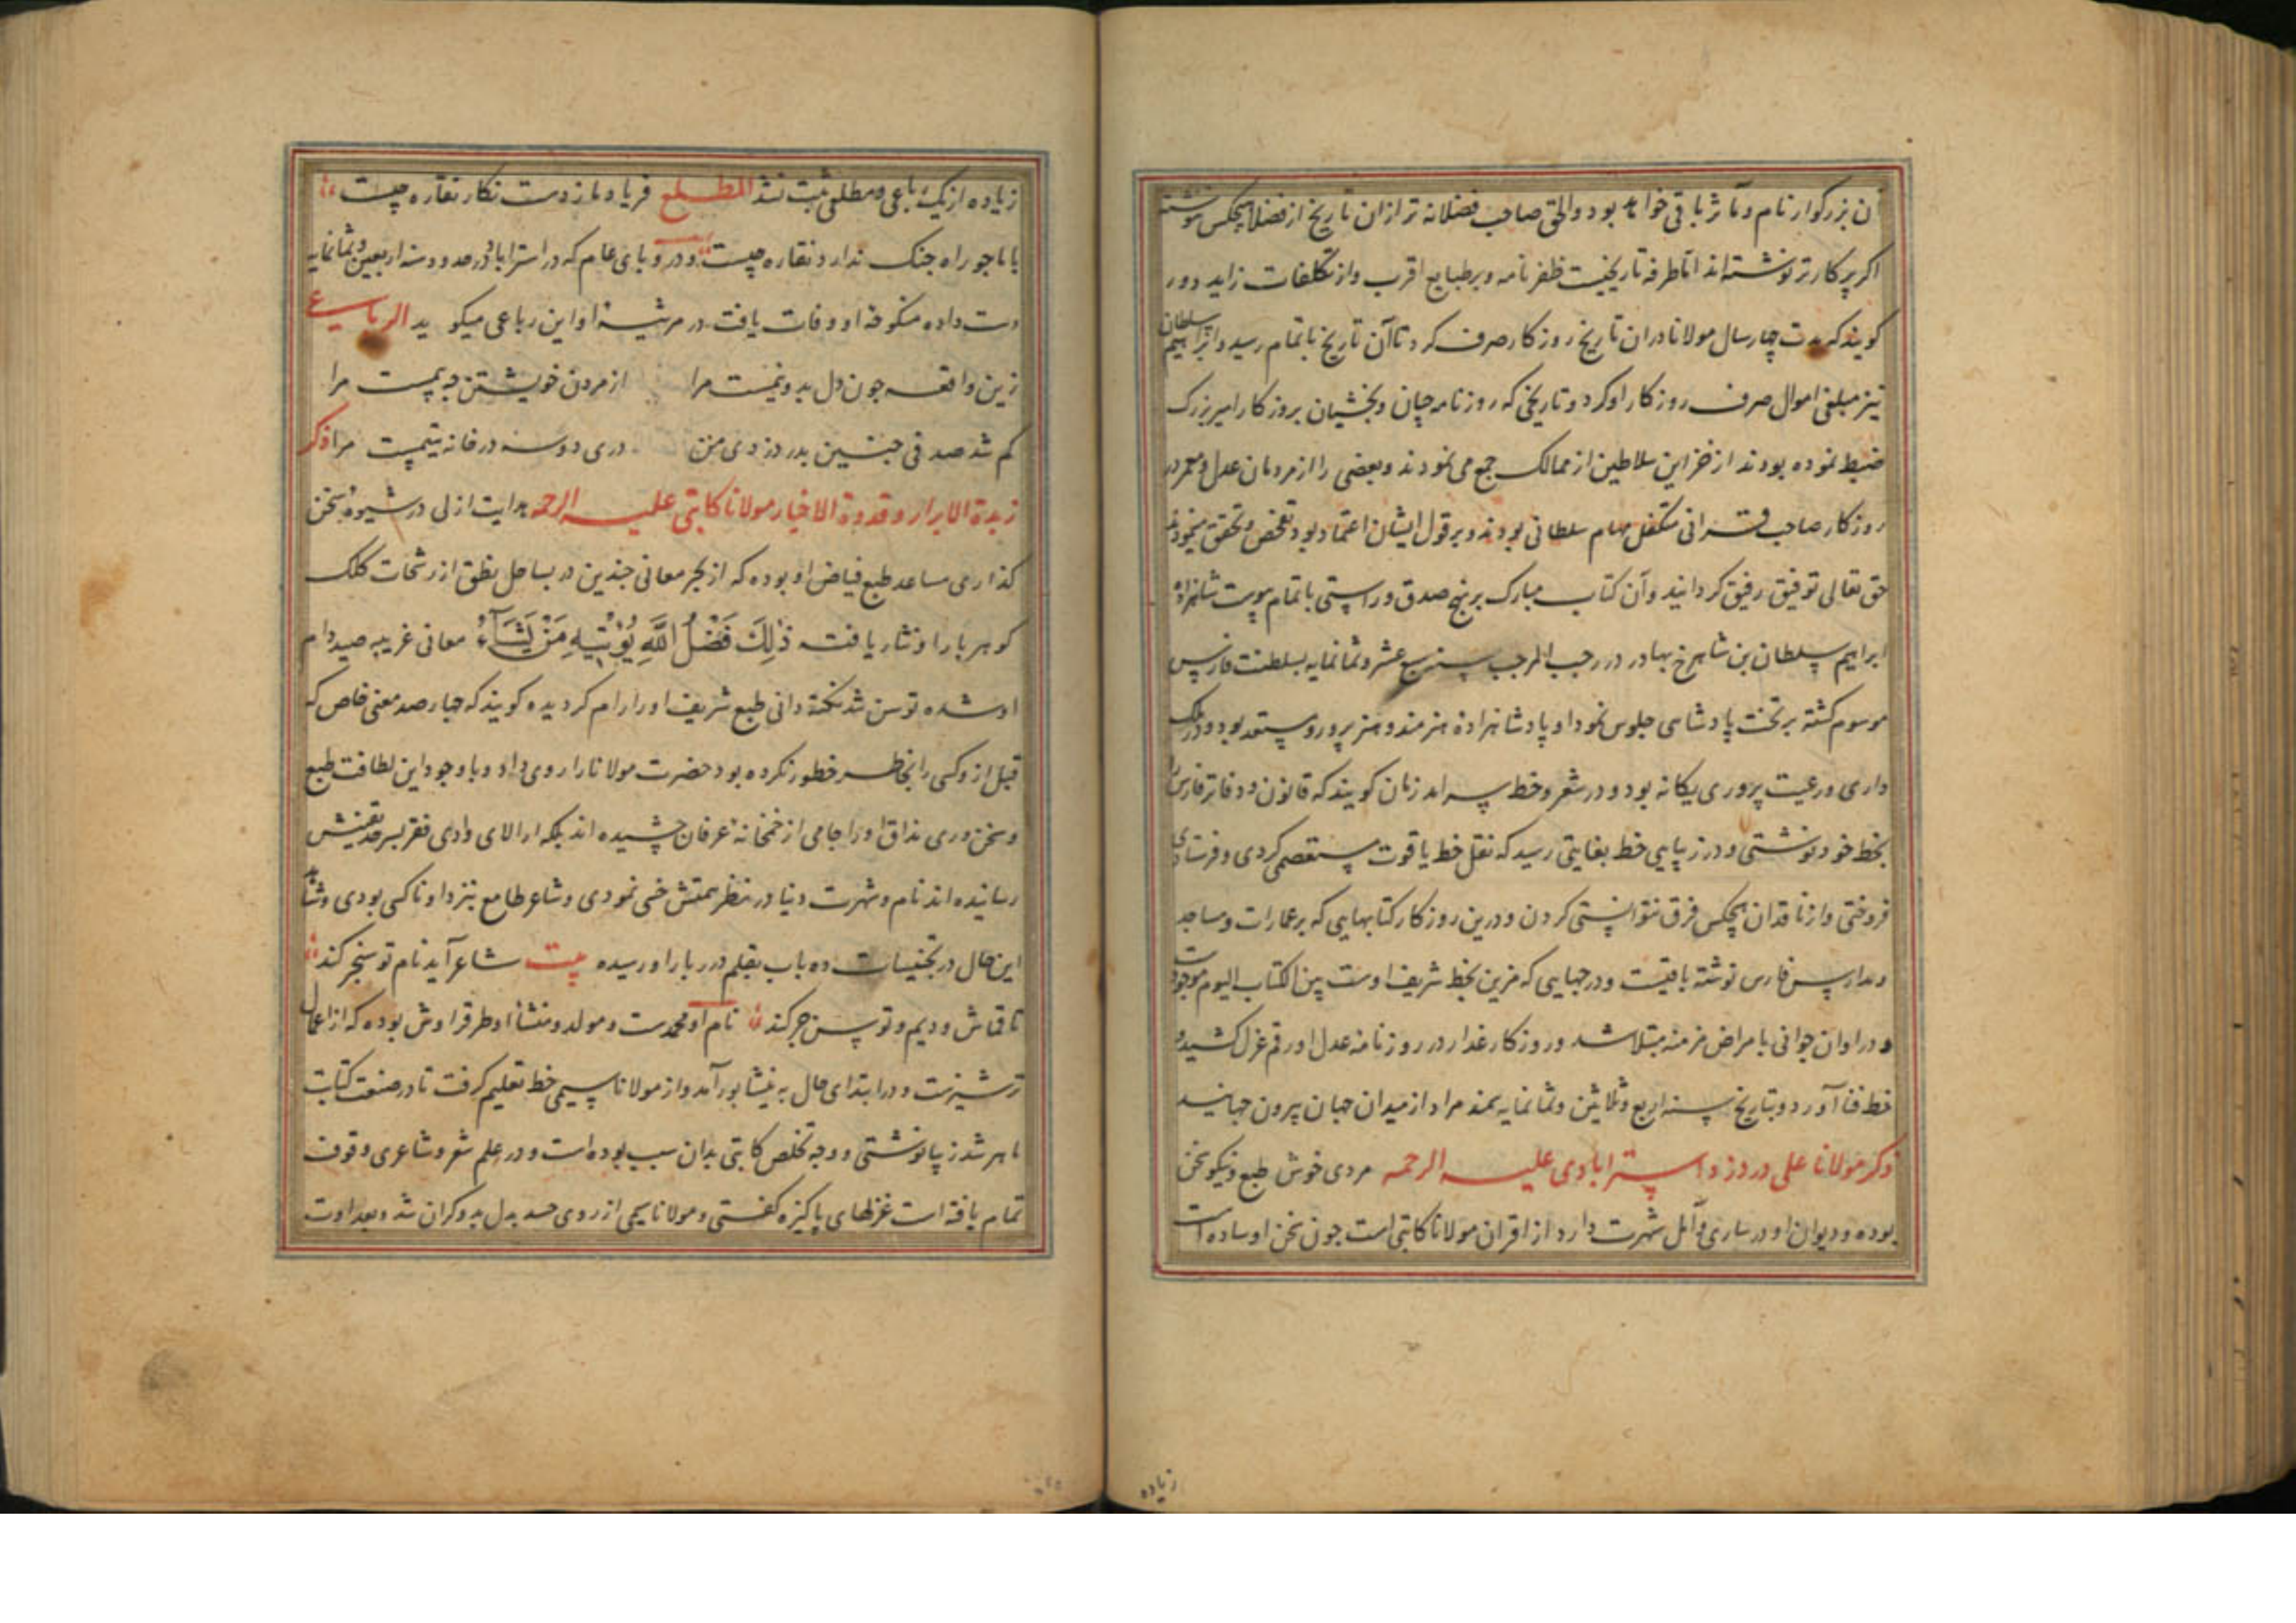 آن بزرکوار نام و مآثر باقی خواهد بود والحق صاحب فضلانه تر ازان تاریخ از فضلا هیچکس ننوشته
اکر پرکارتر نوشته اند اما طرفه تاریخیست ظفرنامه و بر طبایع اقرب و از تکلفات زاید دور
کویند که مدت چهار سال مولانا دران تاریخ روزکار صرف کرد تا آن تاریخ باتمام رسید و ابراهیم سلطان
نیز مبلغی اموال صرف روزکار او کرد و تاریخی که روزنامه چیان و بخشیان بروزکار امیر بزرک
ضبط نموده بودند از خزاین سلاطین از ممالک جمع می نمودند و بعضی را از مردمان عدل و معمر در
روزکار صاحب قرانی متکفل مهام سلطانی بودند و بر قول ایشان اعتماد بود تفحص و تحقق مینمود
حق تعالی توفیق رفیق کردانید و آن کتاب مبارک بر نهج صدق و راستی باتمام پیوست شاهزاده
ابراهیم سلطان بن شاهرخ بهادر در رجب المرجب سنه سبع عشر و ثمانمایه بسلطنت فارس
موسوم کشته بر تخت پادشاهی جلوس نمود او پادشاهزاده هنرمند و هنرپرور و مستعد بود و در ملک
داری و رعیت پروری یکانه بود و در شعر و خط سرآمد زمان کویند که قانون و دفاتر فارس را
بخط خود نوشتی و در زیبایی خط بغایتی رسید که نقل خط یاقوت مستعصمی کردی و فرستادی
فروختی و از ناقدان هیچکس فرق نتوانستی کردن و درین روزکار کتابهایی که بر عمارات و مساجد
و مدارس فارس نوشته باقیست و درجهایی که مزین بخط شریف اوست بین الکتاب الیوم موجودست
و در اوان جوانی بامراض مزمنه مبتلا شد و روزکار غدار در روزنامه عدل او رقم عزل کشیده
خط فنا آورد و بتاریخ سنه اربع و ثلاثین و ثمانمایه سمند مراد از میدان جهان بیرون جهانید
ذکر مولانا علی در دزد استرابادی علیه الرحمه مردی خوش طبع و نیکو سخن
بوده و دیوان او در ساری و آمل شهرت دارد از اقران مولانا کاتبی است جون سخن او ساده است
زیاده
زیاده از یک رباعی و مطلعی ثبت نشد المطلع فریاد ما ز دست نکار نقاره چیست
با ما جو راه جنک ندارد نقاره چیست و در وبای عام که در استراباد در حدود سنه اربعین و ثمانمایه
دست داده منکوحه او وفات یافت در مرثیه او این رباعی میکوید الرباعی
زین واقعه جون دل بدو نیمست مرا از مردن خویشتن چه بیمست مرا
کم شد صدفی جنین بدر دزدی من دری دو سه در خانه یتیمست مرا ذکر
زبدة الابرار و قدوة الاخیار مولانا کاتبی علیه الرحمه هدایت ازلی در شیوه سخن
کذاری مساعد طبع فیاض او بوده که از بحر معانی جندین در بساحل نطق از رشحات کلک
کوهر بار او نثار یافت ذٰلِكَ فَضْلُ اللَّهِ يُؤْتِيهِ مَنْ يَشَآءُ معانی غریبه صید دام
او شده توسن تند نکته دانی طبع شریف او را رام کردیده کویند که جهار صد معنی خاص که
قبل از و کسی را بخاطر خطور نکرده بود حضرت مولانا را روی داد و با وجود این لطافت طبع
و سخن وری مذاق او را جامی از خمخانه عرفان چشیده اند بلکه از الای وادی فقر بسرحد یقینش
رسانیده اند نام و شهرت دنیا در نظر همتش خسی نمودی و شاعر طامع نزد او ناکسی بودی و شاهد
این حال در تجنیسات ده باب بقلم در ربار او رسیده بیت شاعر آید نام تو سنجر کند
تا قماش و دیم و تو سن جر کند نام او محمدست و مولد و منشأ او طرق راوش بوده که از اعمال
ترشیزست و در ابتدای حال به نیشابور آمد و از مولانا سیمی خط تعلیم کرفت تا در صنعت کتابت
ماهر شد زیبا نوشتی و وجه تخلص کاتبی بدان سبب بوده است و در علم شعر و شاعری وقوف
تمام یافته است غزلهای پاکیزه کفتی و مولانا سیمی از روی حسد بدل بدو کران شد و بعداوت